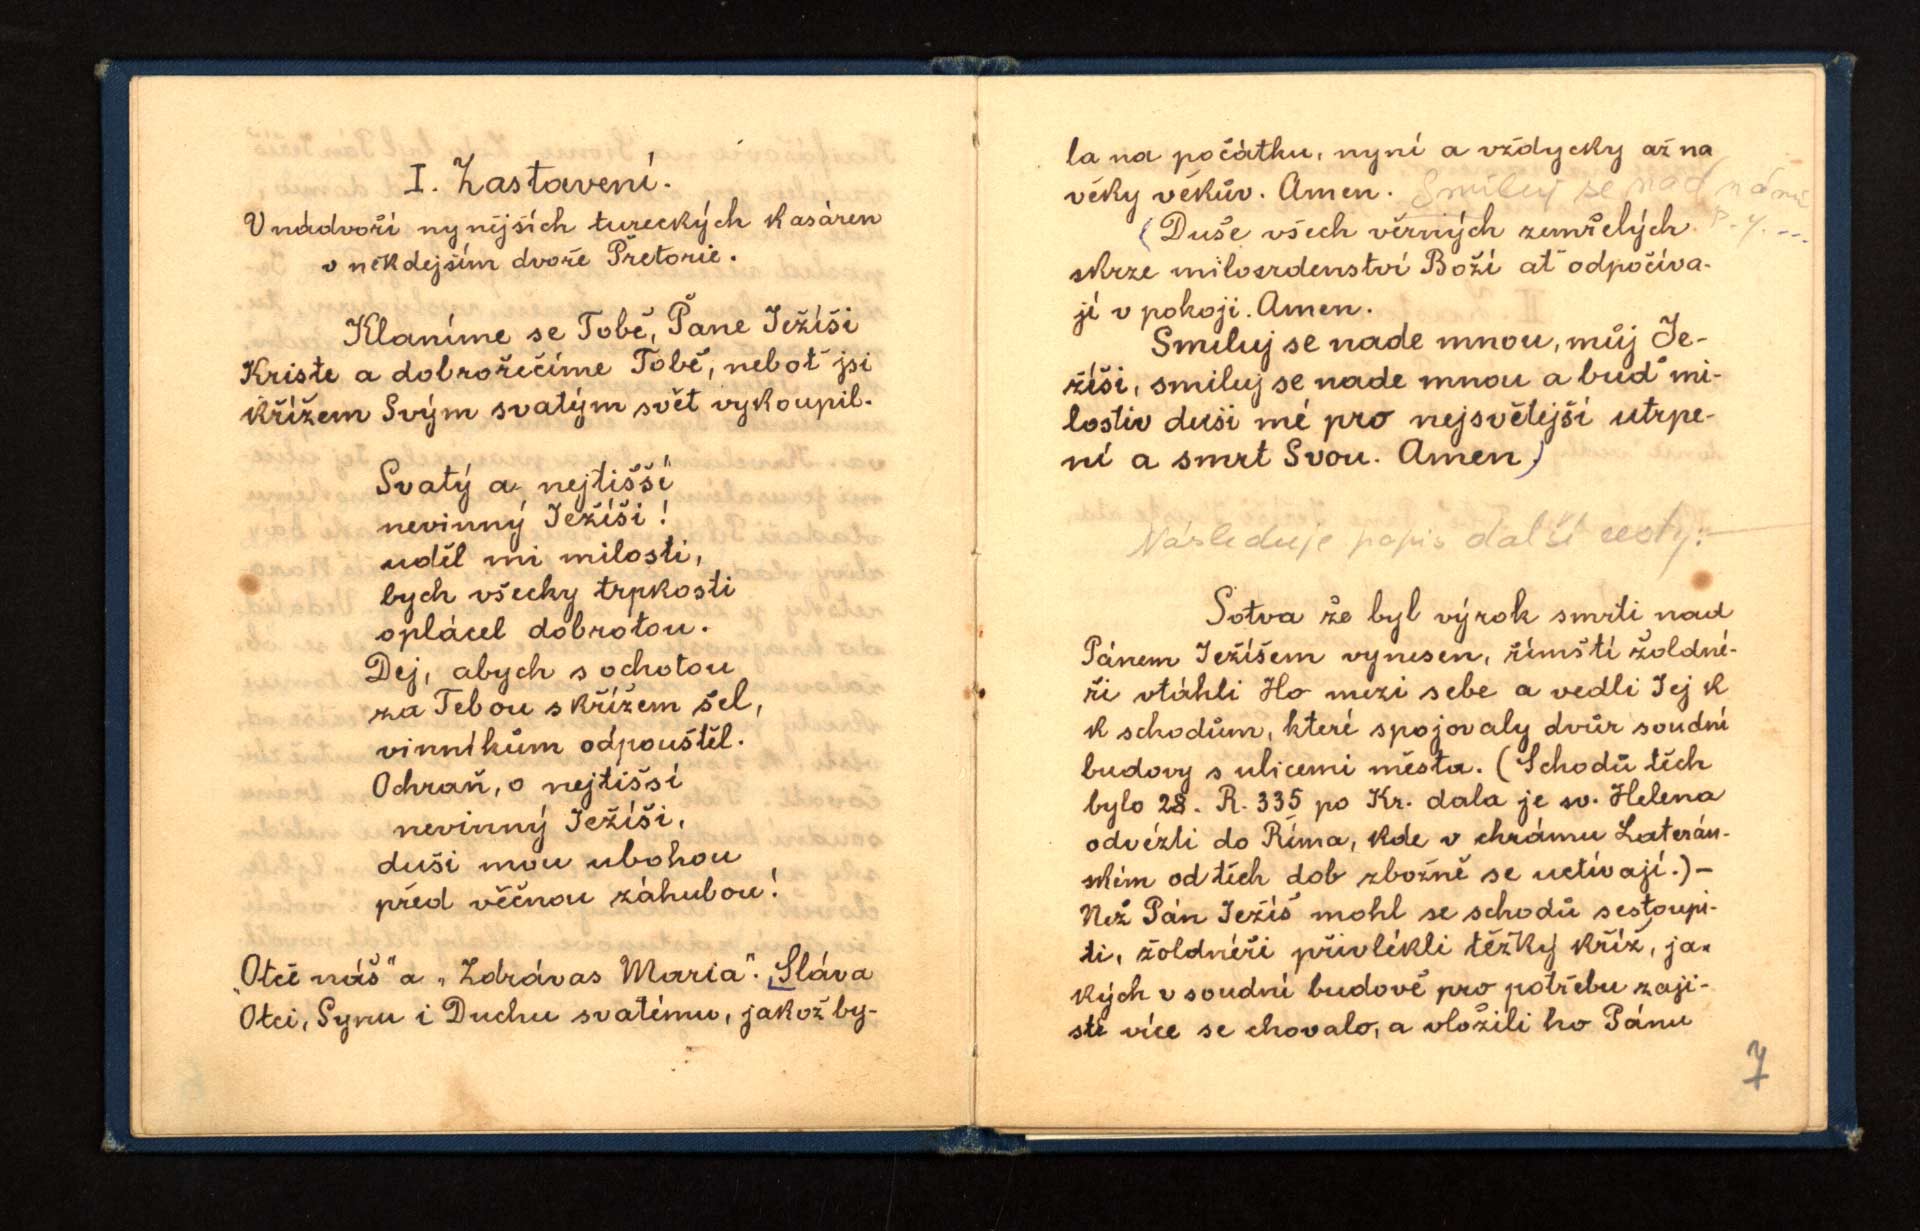 I. Zastavení.
V nádvoří nynějších tureckých kasáren
v někdejším dvoře Pretorie.
Klaníme se Tobě, Pane Ježíši
Kriste a dobrořečíme Tobě, neboť jsi
křížem Svým svatým svět vykoupil.
Svatý a nejtišší
nevinný Ježíši!
uděl mi milosti,
bych všecky trpkosti
oplácel dobrotou.
Dej, abych s ochotou
za Tebou s křížem šel,
vinníkům odpouštěl.
Ochraň, o nejtišší
nevinný Ježíši,
duši mou ubohou
před věčnou záhubou!
„Otče náš" a „Zdrávas Maria". Sláva
Otci, Synu i Duchu svatému, jakož by-
la na počátku, nyní a vždycky až na
věky věkův. Amen. Smiluj se nad námi
P. y. ---
(Duše všech věrných zemřelých
skrze milosrdenství Boží ať odpočíva-
jí v pokoji. Amen.
Smiluj se nade mnou, můj Je-
žíši, smiluj se nade mnou a buď mi-
lostiv duši mé pro nejsvětější utrpe-
ní a smrt Svou. Amen.)
Následuje popis další cesty:
Sotva že byl výrok smrti nad
Pánem Ježíšem vynesen, římští žoldné-
ři vtáhli Ho mezi sebe a vedli Jej k
k schodům, které spojovaly dvůr soudní
budovy s ulicemi města. (Schodů těch
bylo 28. R. 335 po Kr. dala je sv. Helena
odvézti do Říma, kde v chrámu Laterán-
ském od těch dob zbožně se uctívají.) -
Než Pán Ježíš mohl se schodů sestoupi-
ti, žoldnéři přivlékli těžký kříž, ja-
kých v soudní budově pro potřebu zaji-
sté více se chovalo, a vložili ho Pánu
7